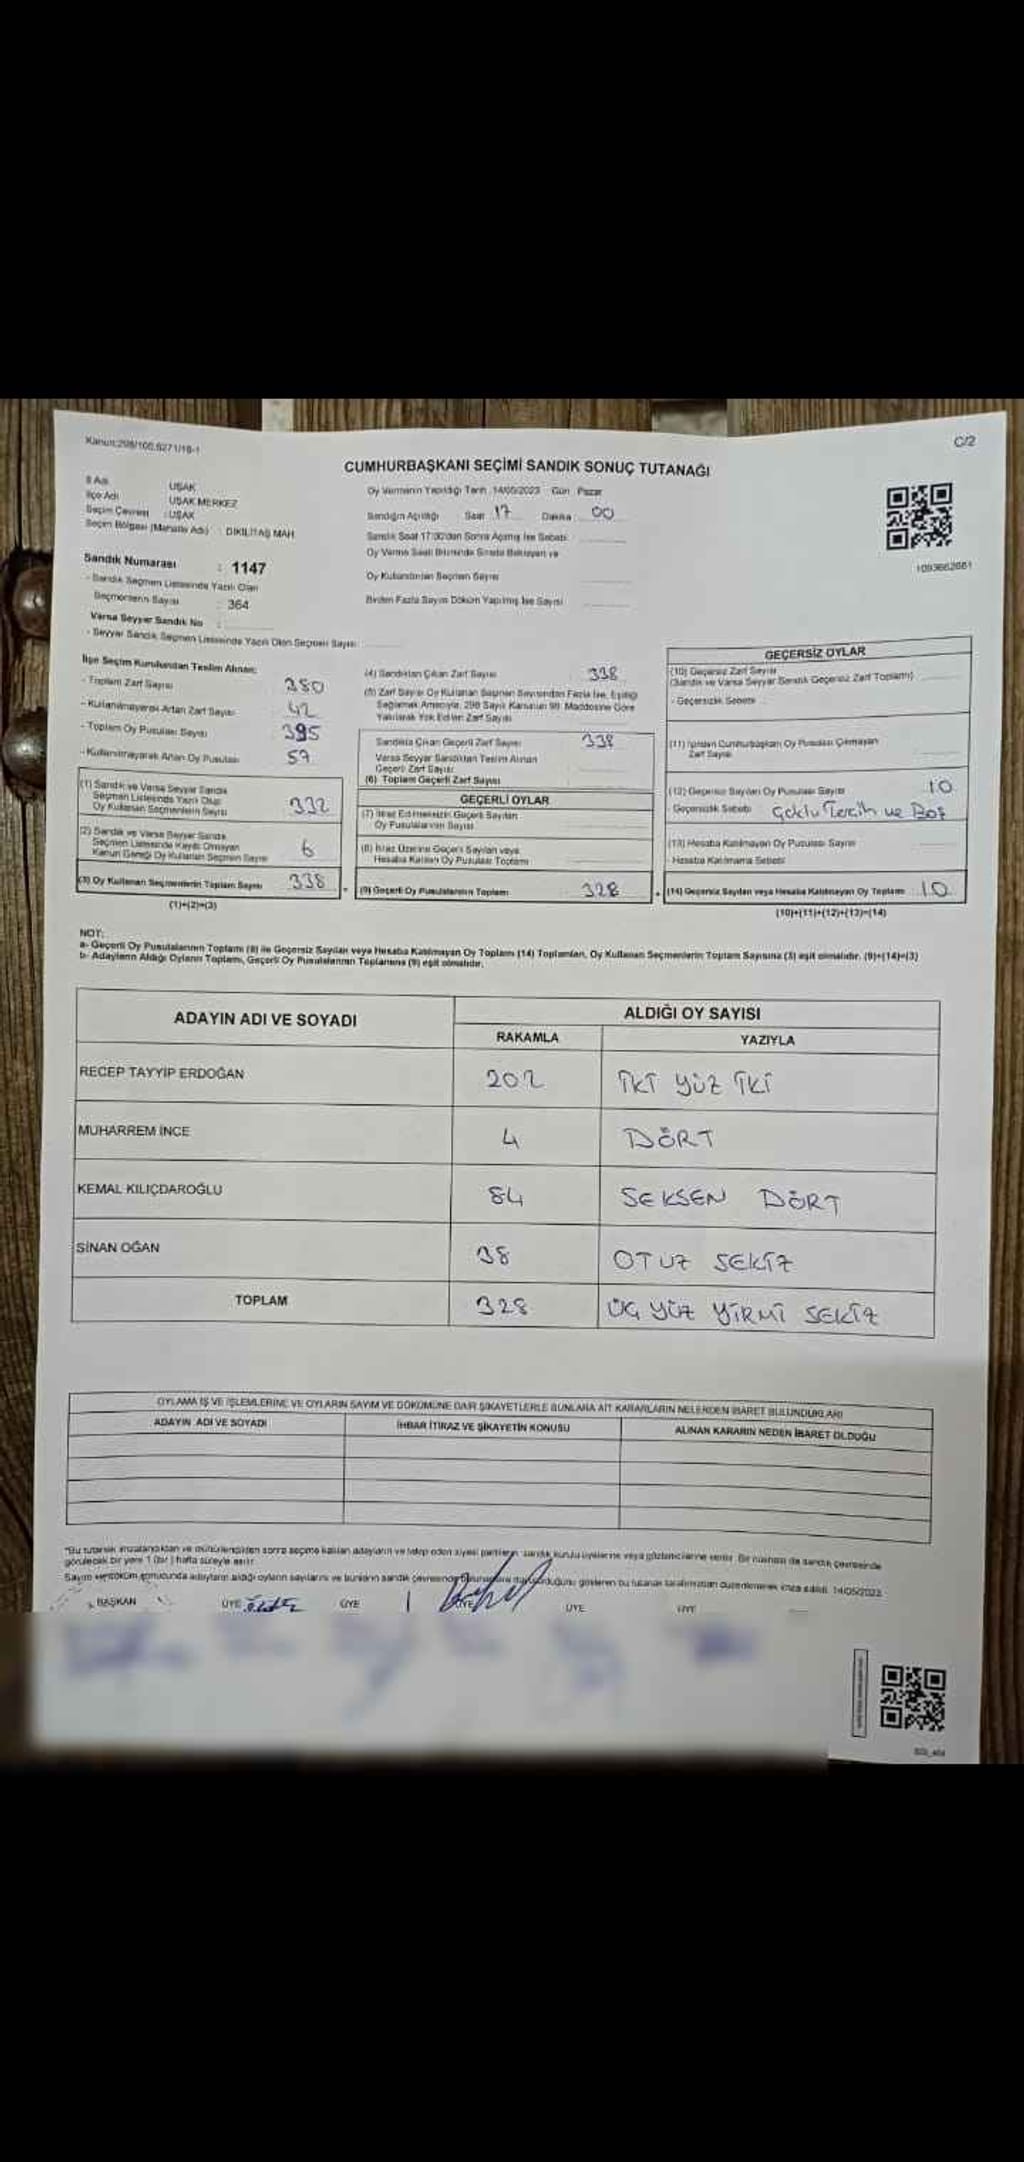 Kanun:298/105,6271/18-1
C/2
CUMHURBAŞKANI SEÇİMİ SANDIK SONUÇ TUTANAĞI
İl Adı UŞAK
İlçe Adı UŞAK MERKEZ
Seçim Çevresi : UŞAK
Seçim Bölgesi (Mahalle Adı) : DİKİLİTAŞ MAH
Sandık Numarası : 1147
- Sandık Seçmen Listesinde Yazılı Olan
Seçmenlerin Sayısı : 364
Varsa Seyyar Sandık No :
- Seyyar Sandık Seçmen Listesinde Yazılı Olan Seçmen Sayısı
Oy Vermenin Yapıldığı Tarih 14/05/2023 Gün Pazar
Sandığın Açıldığı Saat 17 Dakika 00
Sandık Saat 17:00'den Sonra Açılmış İse Sebebi
Oy Verme Saati Bitiminde Sırada Bekleyen ve
Oy Kullandırılan Seçmen Sayısı
Birden Fazla Sayım Döküm Yapılmış İse Sayısı
1093662661
İlçe Seçim Kurulundan Teslim Alınan:
- Toplam Zarf Sayısı 380
- Kullanılmayarak Artan Zarf Sayısı 42
- Toplam Oy Pusulası Sayısı 395
- Kullanılmayarak Artan Oy Pusulası 57
(1) Sandık ve Varsa Seyyar Sandık
Seçmen Listesinde Yazılı Olup
Oy Kullanan Seçmenlerin Sayısı 332
(2) Sandık ve Varsa Seyyar Sandık
Seçmen Listesinde Kayıtlı Olmayan
Kanun Gereği Oy Kullanan Seçmen Sayısı 6
(3) Oy Kullanan Seçmenlerin Toplam Sayısı 338
(1)+(2)=(3)
(4) Sandıktan Çıkan Zarf Sayısı 338
(5) Zarf Sayısı Oy Kullanan Seçmen Sayısından Fazla İse, Eşitliği
Sağlamak Amacıyla, 298 Sayılı Kanunun 98. Maddesine Göre
Yakılarak Yok Edilen Zarf Sayısı
Sandıkta Çıkan Geçerli Zarf Sayısı 338
Varsa Seyyar Sandıktan Teslim Alınan
Geçerli Zarf Sayısı
(6) Toplam Geçerli Zarf Sayısı
GEÇERLİ OYLAR
(7) İtiraz Edilmeksizin Geçerli Sayılan
Oy Pusulalarının Sayısı
(8) İtiraz Üzerine Geçerli Sayılan veya
Hesaba Katılan Oy Pusulaları Toplamı
(9) Geçerli Oy Pusulalarının Toplamı 328
GEÇERSİZ OYLAR
(10) Geçersiz Zarf Sayısı
(Sandık ve Varsa Seyyar Sandık Geçersiz Zarf Toplamı)
- Geçersizlik Sebebi
(11) İçinden Cumhurbaşkanı Oy Pusulası Çıkmayan
Zarf Sayısı
(12) Geçersiz Sayılan Oy Pusulası Sayısı 10
Geçersizlik Sebebi Çoklu Tercih ve Boş
(13) Hesaba Katılmayan Oy Pusulası Sayısı
Hesaba Katılmama Sebebi
(14) Geçersiz Sayılan veya Hesaba Katılmayan Oy Toplamı 10
(10)+(11)+(12)+(13)=(14)
NOT:
a- Geçerli Oy Pusulalarının Toplamı (9) ile Geçersiz Sayılan veya Hesaba Katılmayan Oy Toplamı (14) Toplamları, Oy Kullanan Seçmenlerin Toplam Sayısına (3) eşit olmalıdır. (9)+(14)=(3)
b- Adayların Aldığı Oyların Toplamı, Geçerli Oy Pusulalarının Toplamına (9) eşit olmalıdır.
ADAYIN ADI VE SOYADI
ALDIĞI OY SAYISI
RAKAMLA YAZIYLA
RECEP TAYYİP ERDOĞAN 202 İKİ YÜZ İKİ
MUHARREM İNCE 4 DÖRT
KEMAL KILIÇDAROĞLU 84 SEKSEN DÖRT
SİNAN OĞAN 38 OTUZ SEKİZ
TOPLAM 328 ÜÇ YÜZ YİRMİ SEKİZ
OYLAMA İŞ VE İŞLEMLERİNE VE OYLARIN SAYIM VE DÖKÜMÜNE DAİR ŞİKAYETLERLE BUNLARA AİT KARARLARIN NELERDEN İBARET BULUNDUKLARI
ADAYIN ADI VE SOYADI İHBAR İTİRAZ VE ŞİKAYETİN KONUSU ALINAN KARARIN NEDEN İBARET OLDUĞU
"Bu tutanak imzalandıktan ve mühürlendikten sonra seçime katılan adayların ve talep eden siyasi partilerin sandık kurulu üyelerine veya gözlemcilerine verilir. Bir nüshası da sandık çevresinde
görülecek bir yere 1 (bir) hafta süreyle asılır.
Sayım ve döküm sonucunda adayların aldığı oyların sayılarını ve bunların sandık çevresinde gösteren bu tutanak tarafımızdan düzenlenerek imza edildi. 14/05/2023
BAŞKAN ÜYE ÜYE ÜYE ÜYE ÜYE